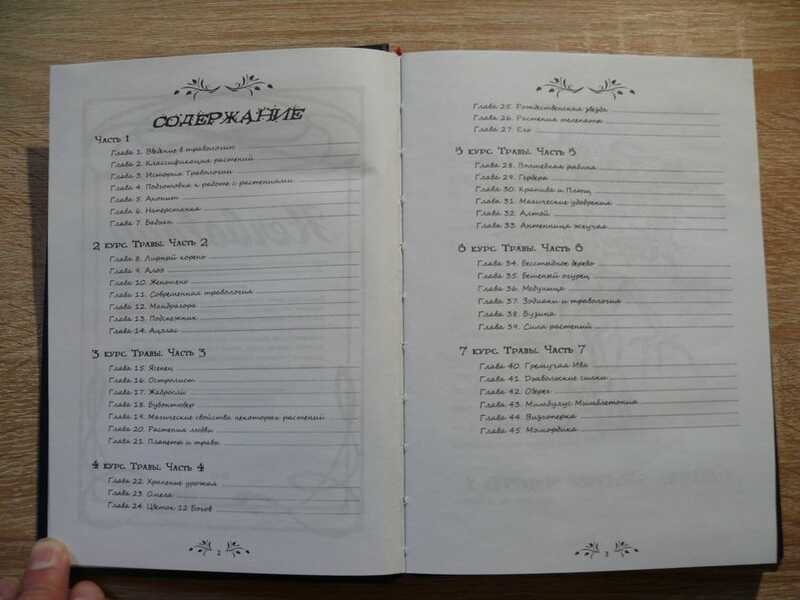 СОДЕРЖАНИЕ
Часть 1
Глава 1. Введение в травологию
Глава 2. Классификация растений
Глава 3. История Травологии
Глава 4. Подготовка к работе с растениями
Глава 5. Аконит
Глава 6. Наперстянка
Глава 7. Бадьян
2 курс. Травы. Часть 2
Глава 8. Лирный корень
Глава 9. Алоэ
Глава 10. Женьшень
Глава 11. Современная травология
Глава 12. Мандрагора
Глава 13. Подснежник
Глава 14.
3 курс. Травы. Часть 3
Глава 15. Ясенец
Глава 16. Остролист
Глава 17. Жабросли
Глава 18. Бубонтюбер
Глава 19. Магические свойства некоторых растений
Глава 20. Растения любви
Глава 21. Планеты и травы
4 курс. Травы. Часть 4
Глава 22. Хранение урожая
Глава 23. Омела
Глава 24. Цветок 12 Богов
2
Глава 25. Рождественская звезда
Глава 26. Растения телепата
Глава 27. Ель
5 курс. Травы. Часть 5
Глава 28. Волшебная рябина
Глава 29. Гербера
Глава 30. Крапива и Плющ
Глава 31. Магические удобрения
Глава 32. Алтей
Глава 33. Антенница жгучая
6 курс. Травы. Часть 6
Глава 34. Бесстыдное дерево
Глава 35. Бешеный огурец
Глава 36. Медуница
Глава 37. Зодиаки и травология
Глава 38. Бузина
Глава 39. Сила растений
7 курс. Травы. Часть 7
Глава 40. Гремучая Ива
Глава 41. Дьявольские силки
Глава 42. Оберег
Глава 43. Мимбулус Мимблетония
Глава 44. Визгоперка
Глава 45. Момордика
3